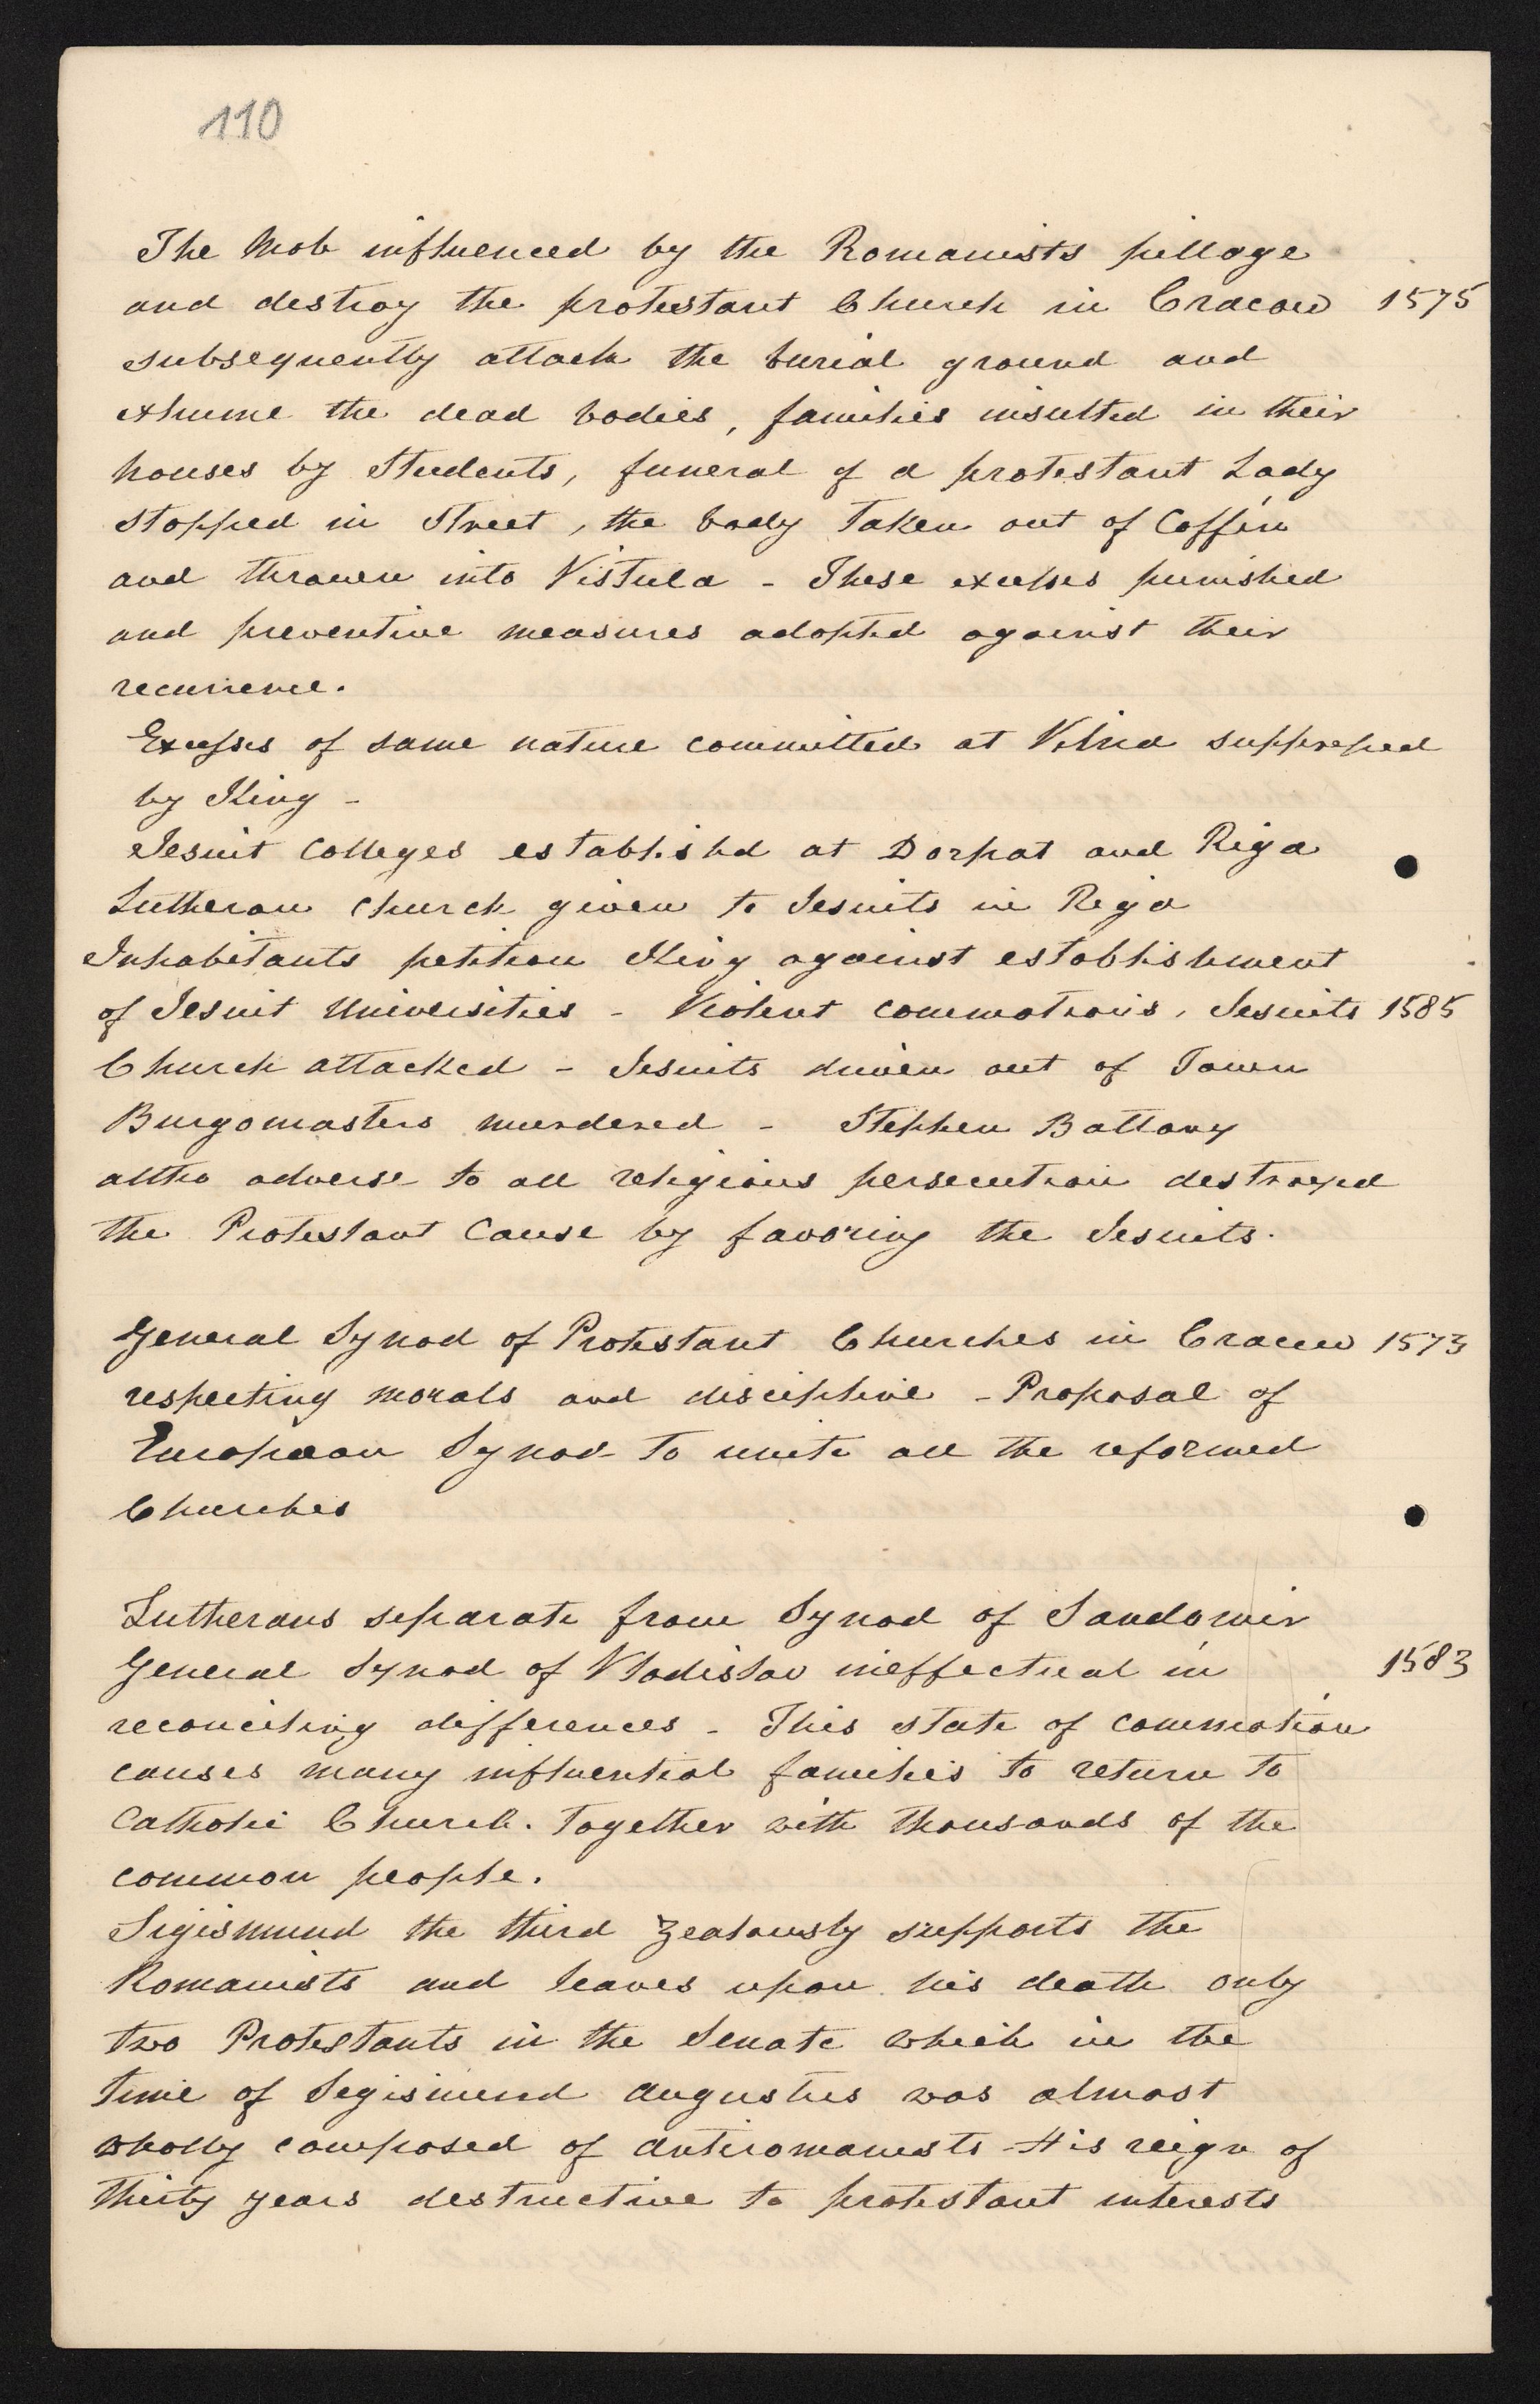 110
The Mob influenced by the Romanists pillage
and destroy the protestant Church in Cracow 1575
subsequently attack the burial ground and
exhume the dead bodies, families insulted in their
houses by Students, funeral of a protestant Lady
stopped in Street, the body taken out of Coffin
and thrown into Vistula - These excesses punished
and preventive measures adopted against their
recurrence.
Excesses of same nature committed at Vilna suppressed
by King -
Jesuit Colleges establishd at Dorpat and Riga
Lutheran Church given to Jesuits in Riga
Inhabitants petition King against establishment
of Jesuit Universities - Violent commotions, Jesuits 1585
Church attacked - Jesuits driven out of Town
Burgomasters murdered - Stephen Battory
altho adverse to all religious persecution destroyed
the Protestant Cause by favoring the Jesuits.
General Synod of Protestant Churches in Cracow 1573
respecting morals and discipline - Proposal of
European Synod to unite all the reformed
Churches
Lutherans separate from Synod of Sandomir
General Synod of Vladislav ineffectual in 1583
reconciling differences - This state of commotion
causes many influential families to return to
Catholic Church. together with thousands of the
common people.
Sigismund the third zealously supports the
Romanists and leaves upon his death only
two Protestants in the Senate which in the
time of Segismund Augustus was almost
wholly composed of antiromanists - His reign of
thirty years destructive to protestant interests